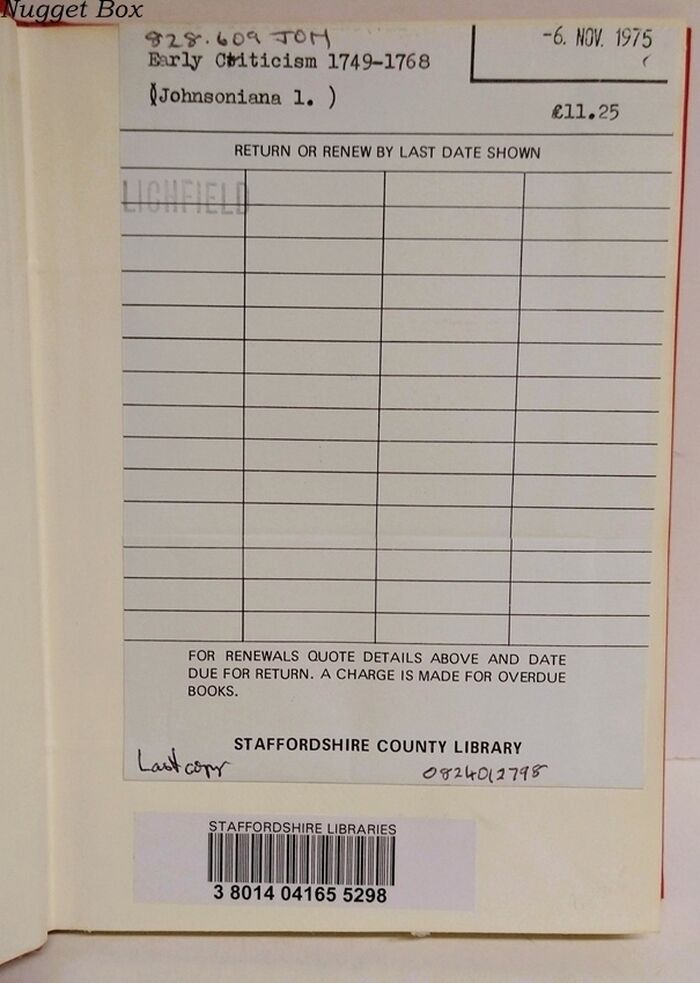 Nugget Box
828.609 JOH
-6. NOV. 1975
Early Criticism 1749-1768
(Johnsoniana 1. )
£11.25
RETURN OR RENEW BY LAST DATE SHOWN
LICHFIELD
FOR RENEWALS QUOTE DETAILS ABOVE AND DATE
DUE FOR RETURN. A CHARGE IS MADE FOR OVERDUE
BOOKS.
STAFFORDSHIRE COUNTY LIBRARY
Last copy
0824012798
STAFFORDSHIRE LIBRARIES
3 8014 04165 5298